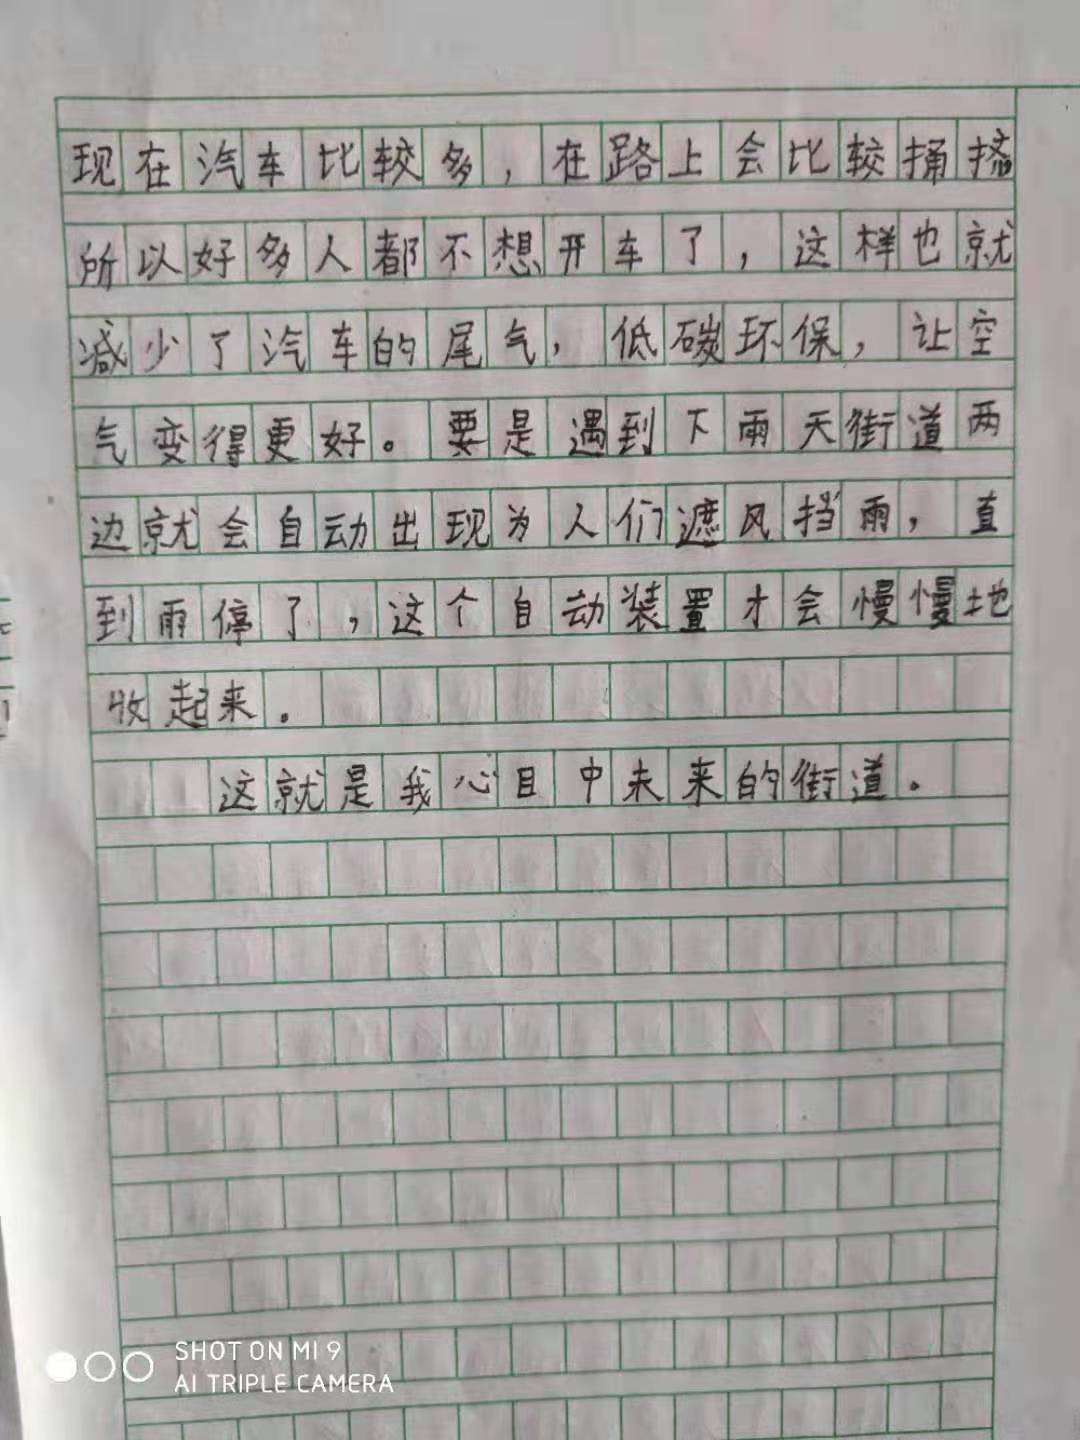 现在汽车比较多，在路上会比较捅挤
所以好多人都不想开车了，这样也就
减少了汽车的尾气，低碳环保，让空
气变得更好。要是遇到下雨天街道两
边就会自动出现为人们遮风挡雨，直
到雨停了，这个自动装置才会慢慢地
收起来。
这就是我心目中未来的街道。
SHOT ON MI 9
AI TRIPLE CAMERA